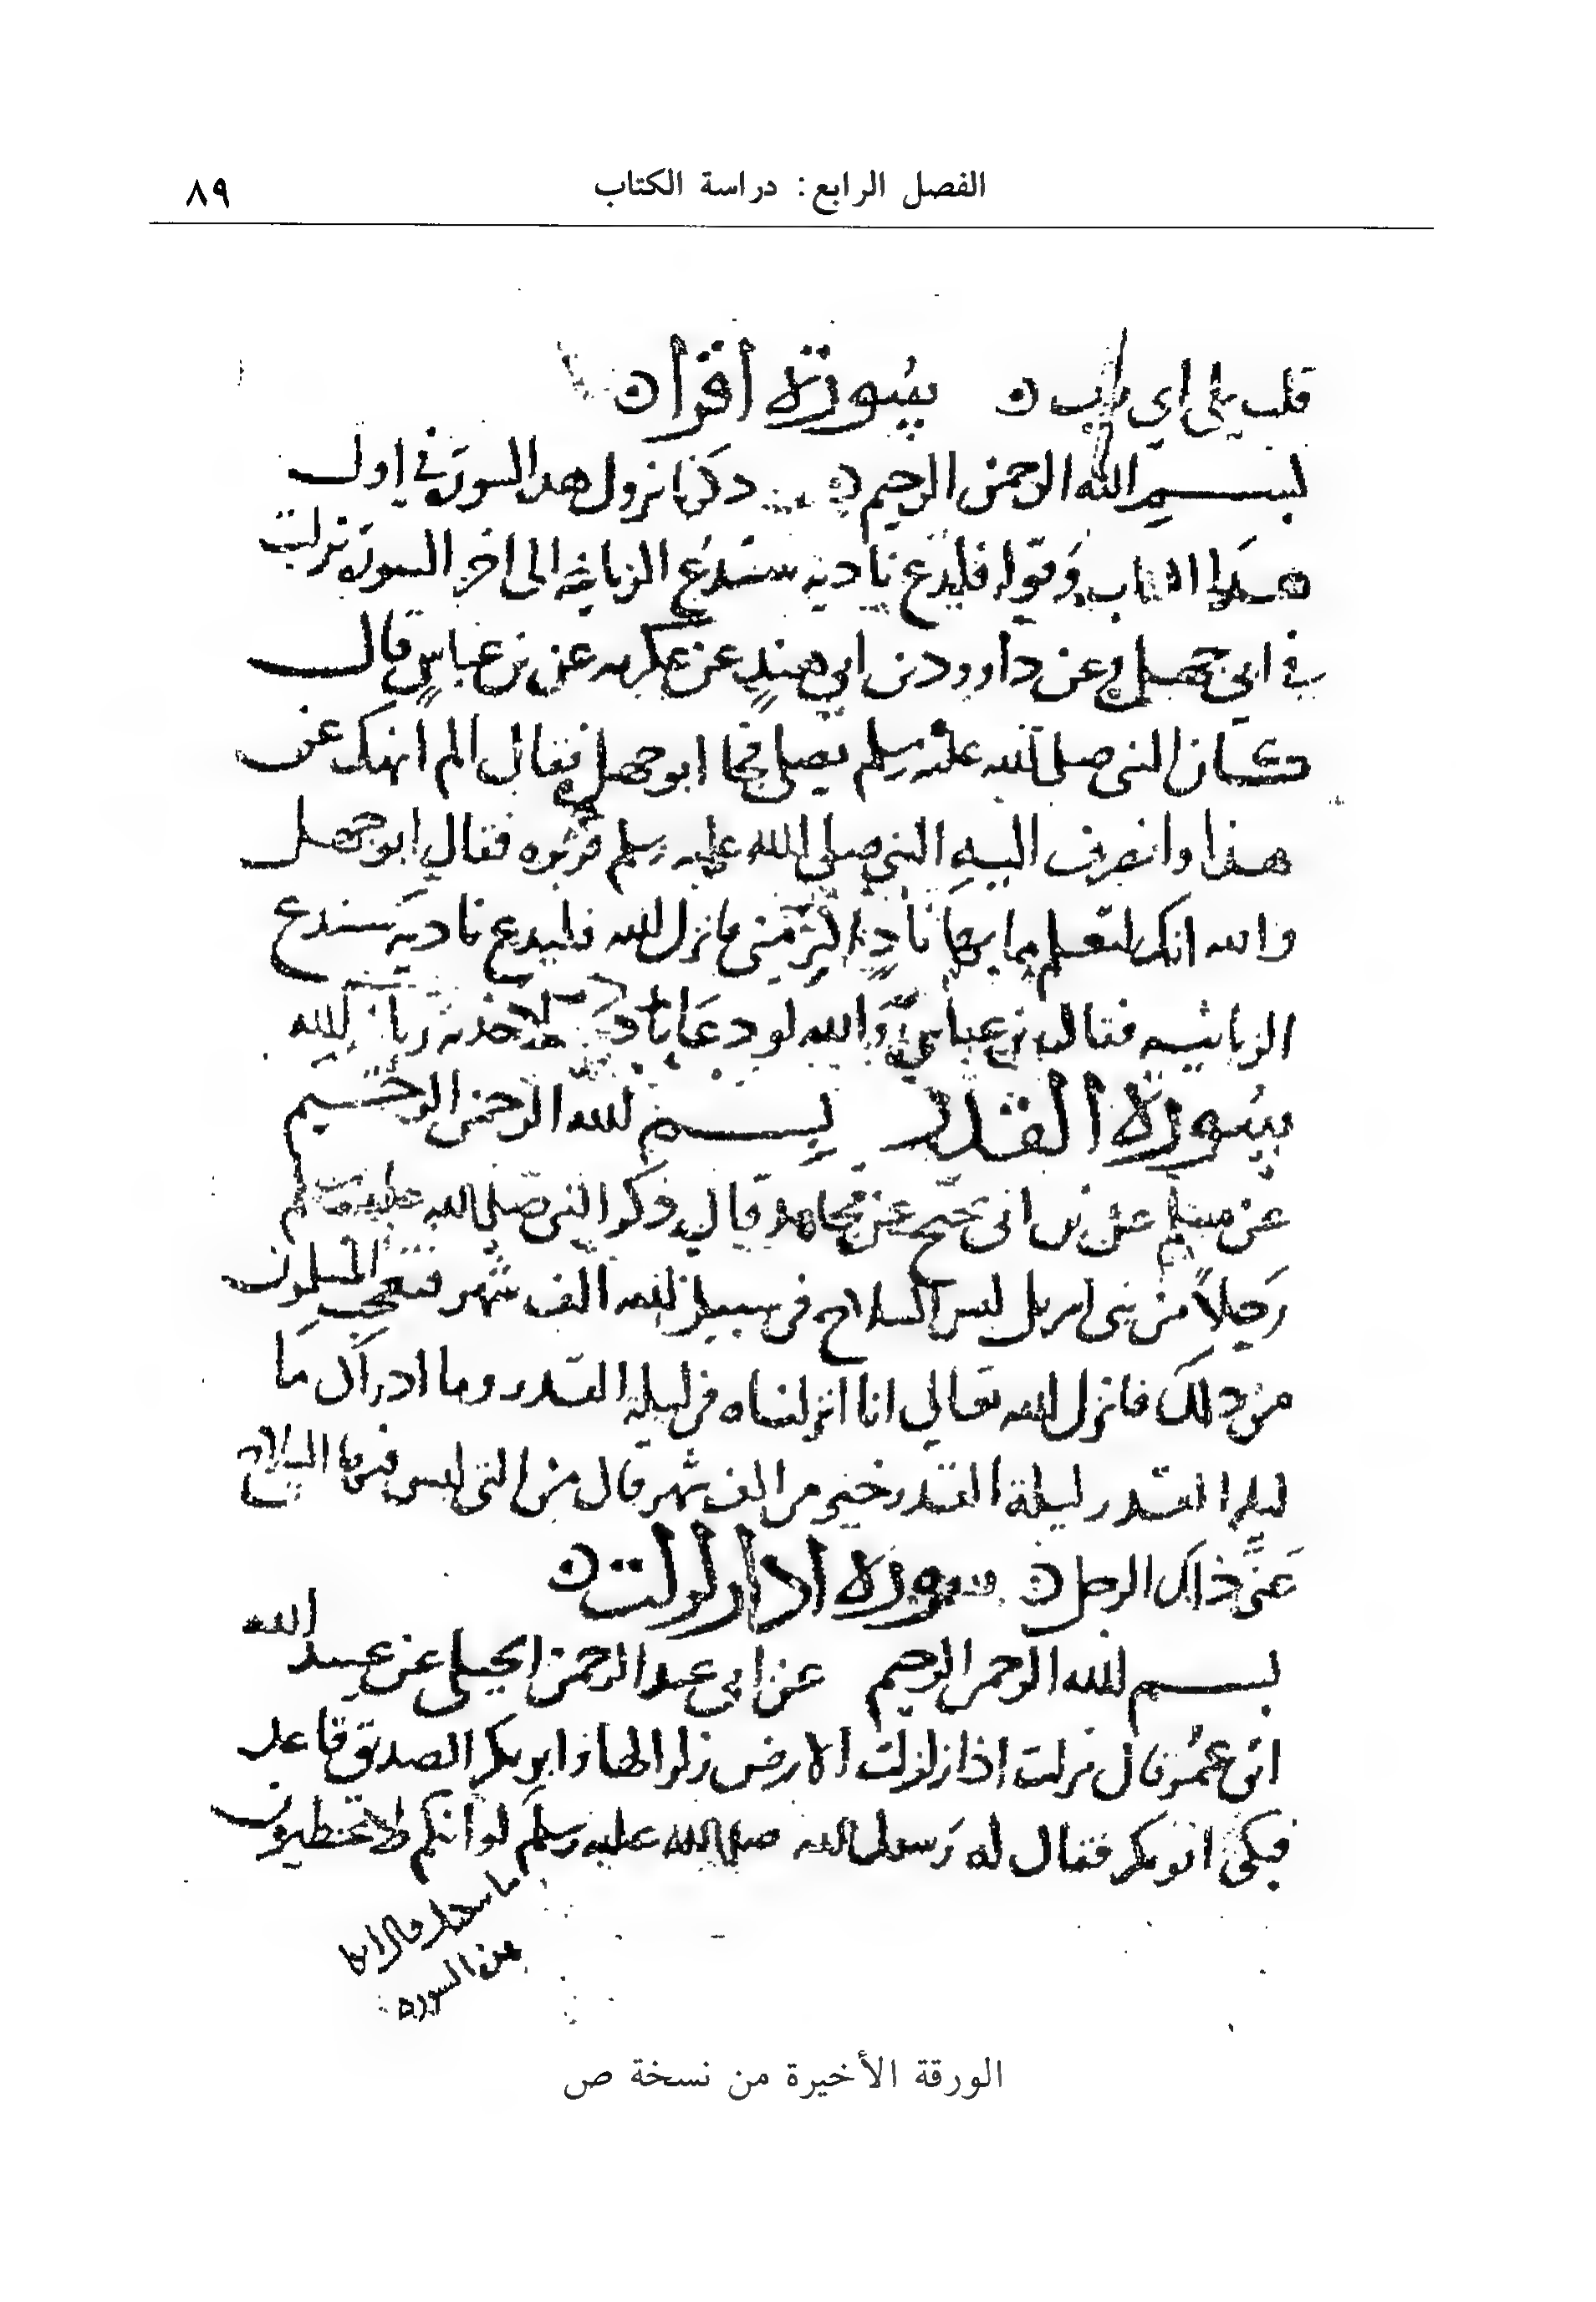 الفصل الرابع: دراسة الكتاب
٨٩
قلت بلى اي رب ن سورة اقرا ن
بسم الله الرحمن الرحيم ن ذكرنا نزول هذا السورة في اول
هذا الكتاب وقوله فليدع ناديه سندع الزبانية الى اخر السورة نزلت
في ابي جهل عن داوود بن ابي هند عن عكرمه عن بن عباس قال
كان النبي صلى الله عليه وسلم يصلي فجا ابو جهل فقال الم انهك عن
هذا وانصرف اليه النبي صلى الله عليه وسلم فزبره فقال ابو جهل
والله انك لتعلم ما بها ناد اكثر مني فانزل الله فليدع ناديه سندع
الزبانيه فقال بن عباس والله لو دعا ناديه لاخذته زبانيه الله
سورة القدر بسم الله الرحمن الرحيم
عن مسلم عن بن ابي نجيح عن مجاهد قال ذكر النبي صلى الله عليه وسلم
رجلا من بني اسريل لبس السلاح في سبيل الله الف شهر فتعجب المسلمون
من ذلك فانزل الله تعالى انا انزلناه في ليلة القدر وما ادراك ما
ليلة القدر ليلة القدر خير من الف شهر قال من التي لبس فيها السلاح
ذاك الرجل ن سورة اذا زلزلت ن
بسم الله الرحمن الرحيم عن ابي عبد الرحمن الحبلي عن عبد الله
ابن عمر قال نزلت اذا زلزلت الارض زلزالها وابو بكر الصديق قاعد
فبكى ابو بكر فقال له رسول الله صلى الله عليه وسلم لو انكم لا تخطيون
من السورة
الورقة الأخيرة من نسخة ص